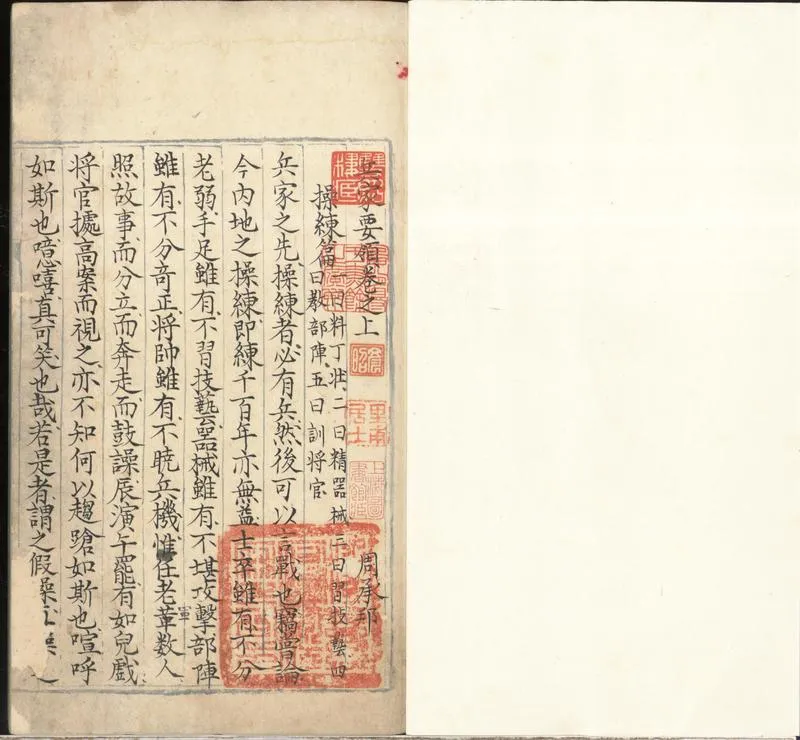 兵家要領卷之上 周承邦
操練篇 一曰料丁壯、二曰精器械、三曰習技藝、四
曰教部陣、五曰訓將官
兵家之先操練者必有兵然後可以言戰也竊嘗論
今內地之操練即練千百年亦無益士卒雖有不分
老弱手足雖有不習技藝器械雖有不堪攻擊部陣
雖有不分奇正將帥雖有不曉兵機惟任老革数人
軍
照故事而分立而奔走而鼓譟辰演午罷有如兒戲
將官據高案而視之亦不知何以趨蹌如斯也喧呼
如斯也噫嘻真可笑也哉若是者謂之假操